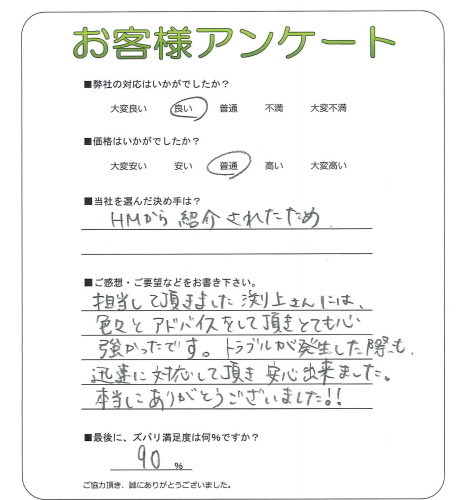 お客様アンケート
■弊社の対応はいかがでしたか?
大変良い 良い 普通 不満 大変不満
■価格はいかがでしたか?
大変安い 安い 普通 高い 大変高い
■当社を選んだ決め手は?
HMから紹介されたため.
■ご感想・ご要望などをお書き下さい。
担当して頂きました渕上さんには、
色々とアドバイスをして頂きとても心
強かったです。トラブルが発生した際も、
迅速に対応して頂き安心出来ました。
本当にありがとうございました!!
■最後に、ズバリ満足度は何%ですか?
90 %
ご協力頂き、誠にありがとうございました。